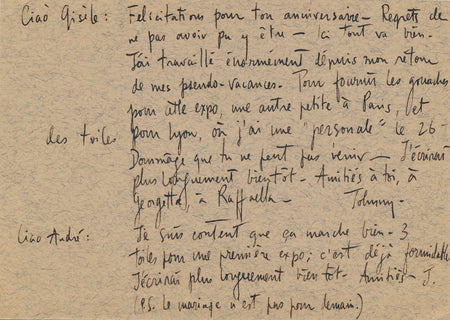 Ciaò Gisèle: Felicitations pour ton anniversaire - Regrets de
ne pas avoir pu y être - Ici tout va bien.
J'ai travaillé énormément depuis mon retour
de mes pseudo-vacances. Pour fournir les gouaches
pour cette expo, une autre petite à Paris, et
des toiles pour Lyon, où j'ai une "personale" le 26-
Dommage que tu ne peut pas venir - J'écrirai
plus longuement bientôt - Amitiés à toi, à
Georgette, à Raffaella - Johnny -
Ciao André: Je suis content que ça marche bien - 3
toiles pour une première expo; c'est déjà formidable
J'écrirai plus longuement bientôt - Amitiés - J.
(P.S. le mariage n'est pas pour demain.)